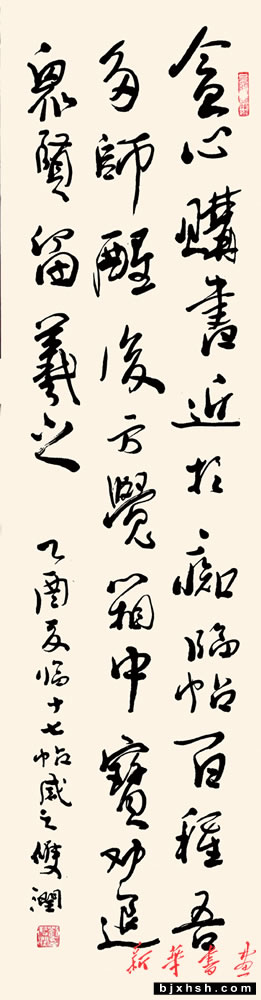 貪心購書近於痴臨帖百種吾
多師醒後方覺箱中寶劝退
衆賢留羲之
乙酉夏臨十七帖感之雙潤
新華書畫
bjxhsh.com